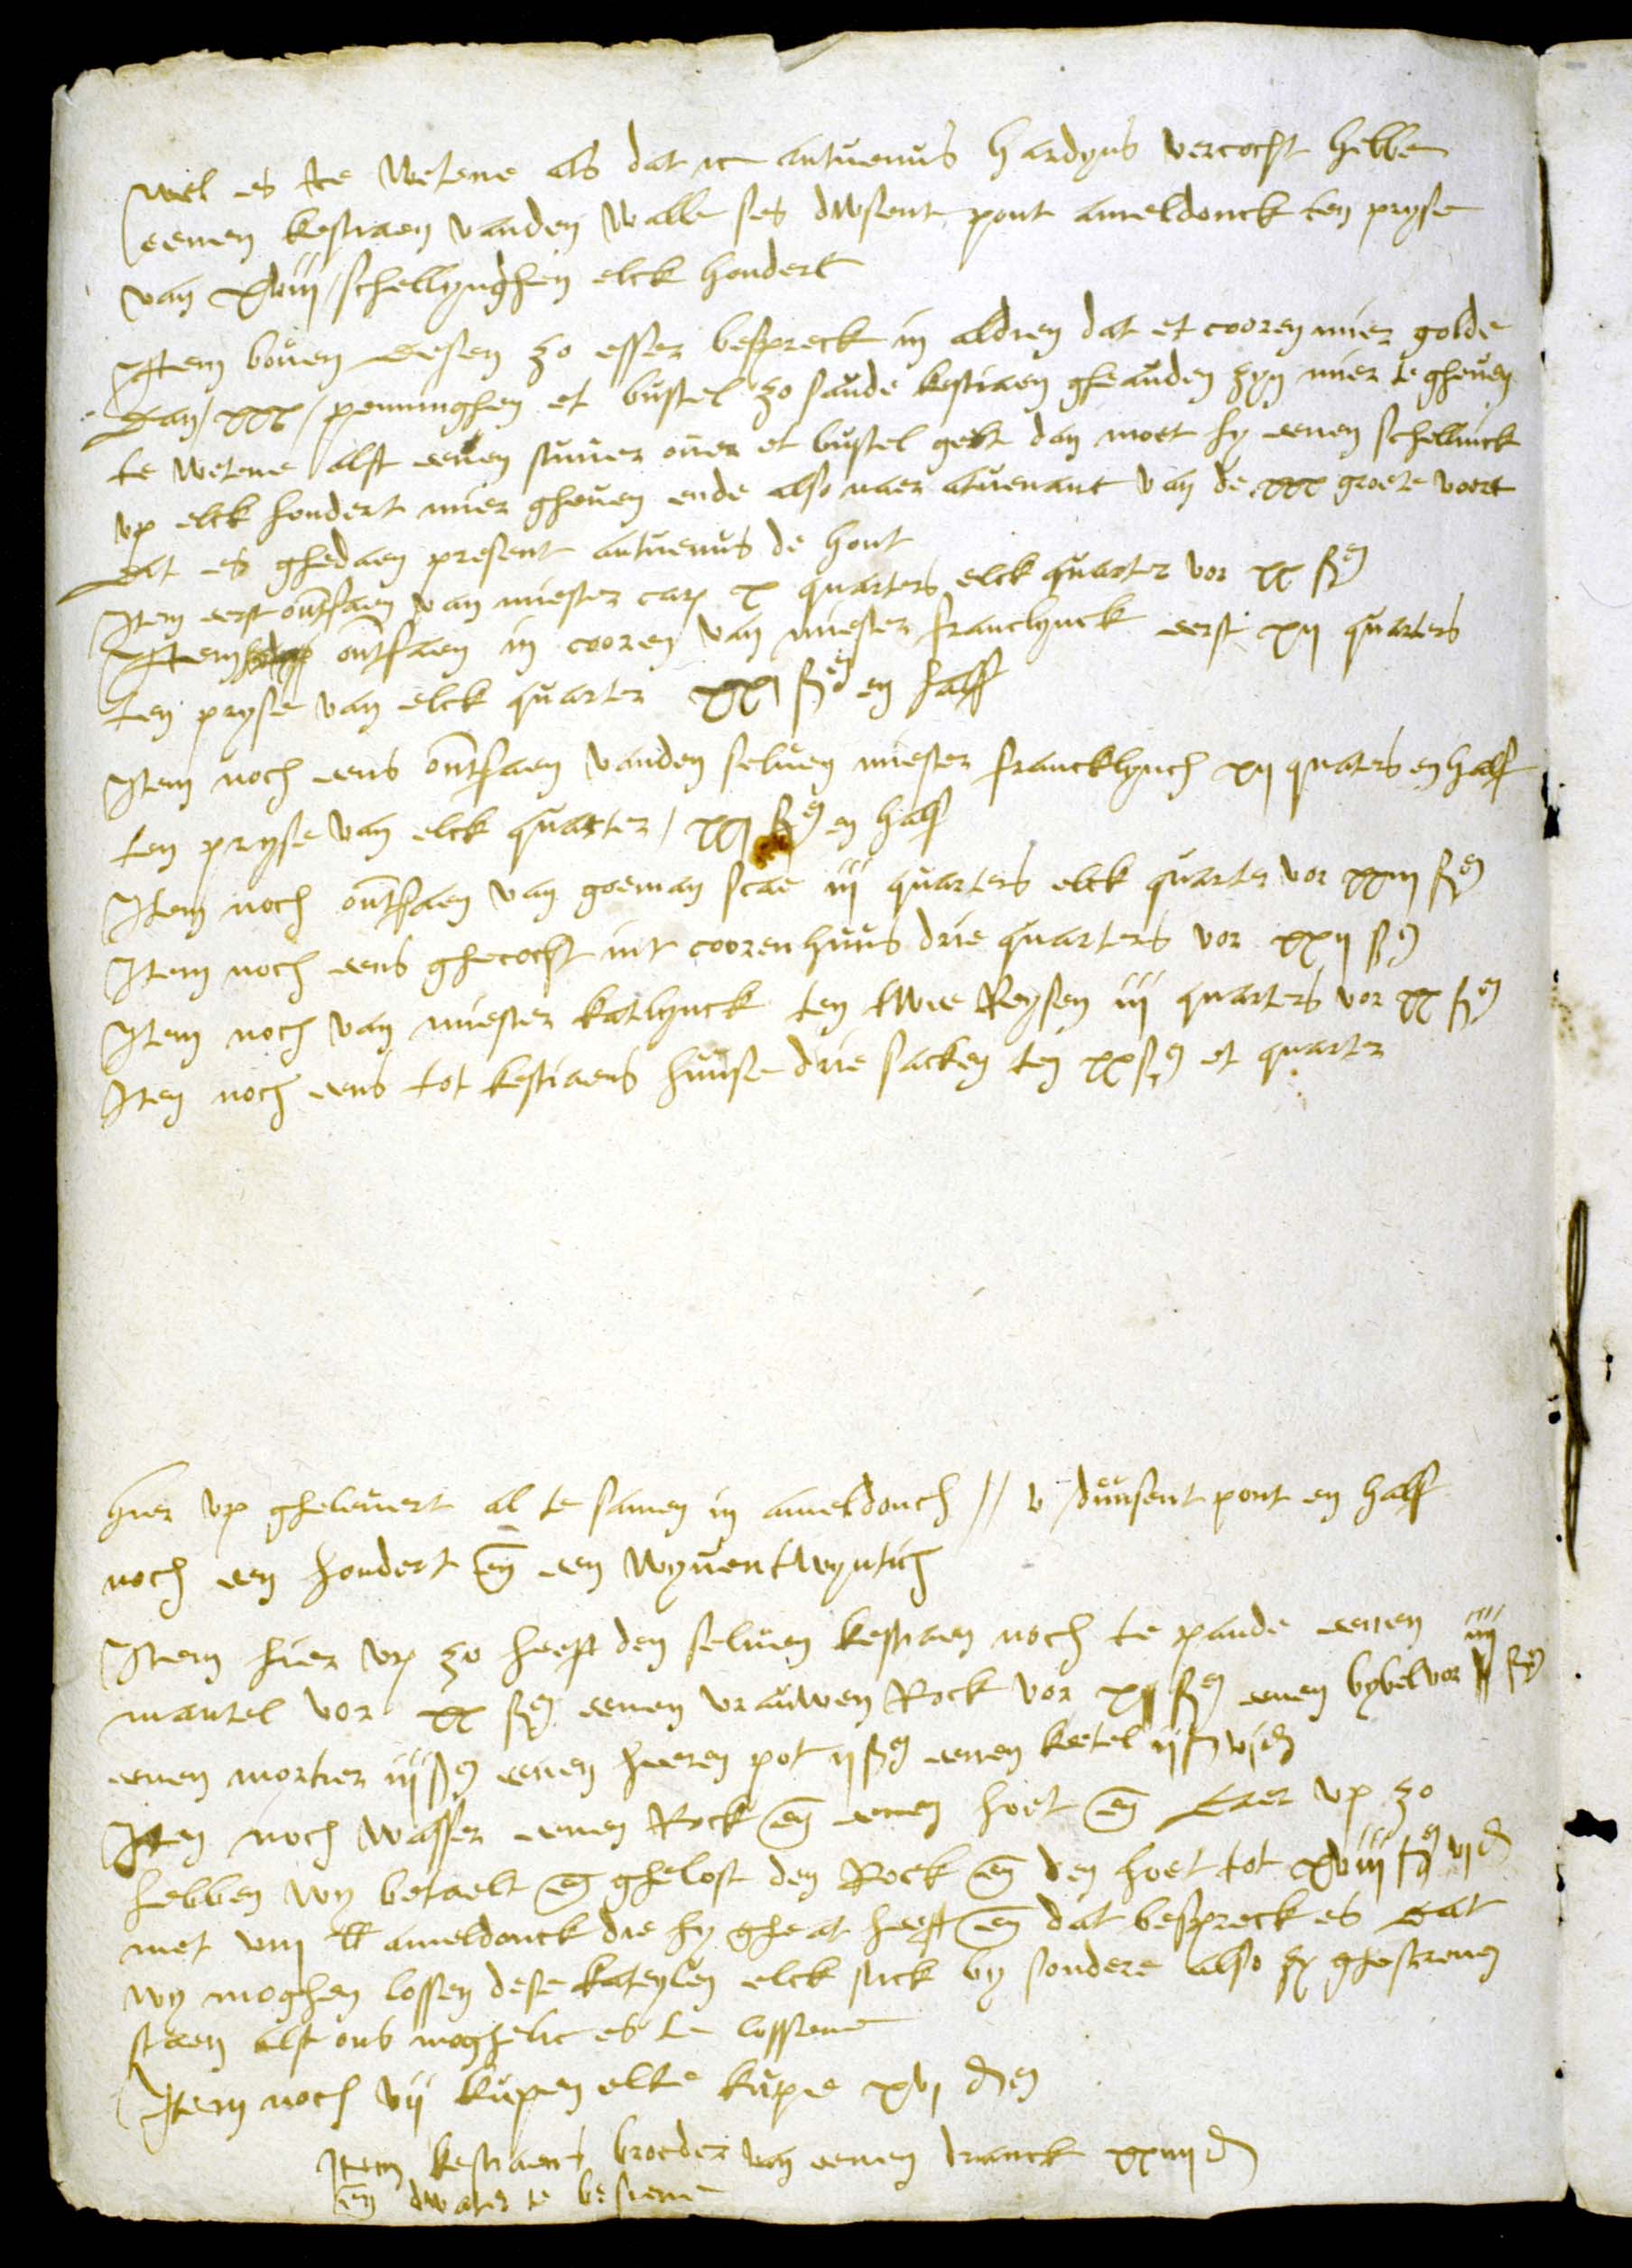 Wel es te wetene als dat ic antuenus hardyns vercocht hebbe
eenen kestiaen vanden walle ses dwsent pont ameldonck ten pryse
van xviii schellynghen elck hondert
Item boven desen zo esser bespreck in aldien dat et cooren mier golde
dan / xxx / penninghen et bustel zo saude kestiaen ghauden zyn mier te gheven
te wetene alst eenen stuver over et bustel gelt dan moet hy eenen schellinck
up elck hondert mier gheven ende also naer atvenant van de xxx groete voort
dat es ghedaen present antuenus de hont
Item eerst ontfaen van miester carp x quarters elck quarter vor xx sch
Item ontfaen in cooren van miester franclynck eerst xii quarters
ten pryse van elck quarter xxi sch en half
Item noch eens ontfaen vanden selven miester francklynch xii quaters en half
ten pryse van elck quarter / xxi sch en half
Item noch ontfaen van goeman scae iii quarters elck quarter vor xxiii sch
Item noch eens ghecocht int coorenhuus drie quarters vor xxii sch
Item noch van miester katlynck ten twee Reysen iii quarters vor xx sch
Item noch eens tot kestiaens huuse drie sacken ten xx sch et quarter
hier up ghelevert al te samen in ameldonch // v duusent pont en half
noch een hondert en een wyventwyntich
Item hier up zo heeft den selven kestiaen noch te pande eenen
mantel vor xx sch eenen vrauwen Rock vor x sch eenen bybel vor iiii sch
eenen mortier iii sch eenen heeren pot ii sch eenen ketel ii sch vi d
Item noch wasser eenen Rock en eenen hoet en daer up zo
hebben wy betaelt en ghelost den Rock en den hoet tot xviii sch vi d
met viii ll ameldonck die hy ghe at heeft en dat bespreck es dat
wy moghen lossen dese kateylen elck stick by sondere also zy ghescreven
staen alst ons moghelic es te lossene
Item noch vii kupen elke kupe xvi den
Item kestiaens broeder van eenen dranck xxiiii d
en dwater te besiene